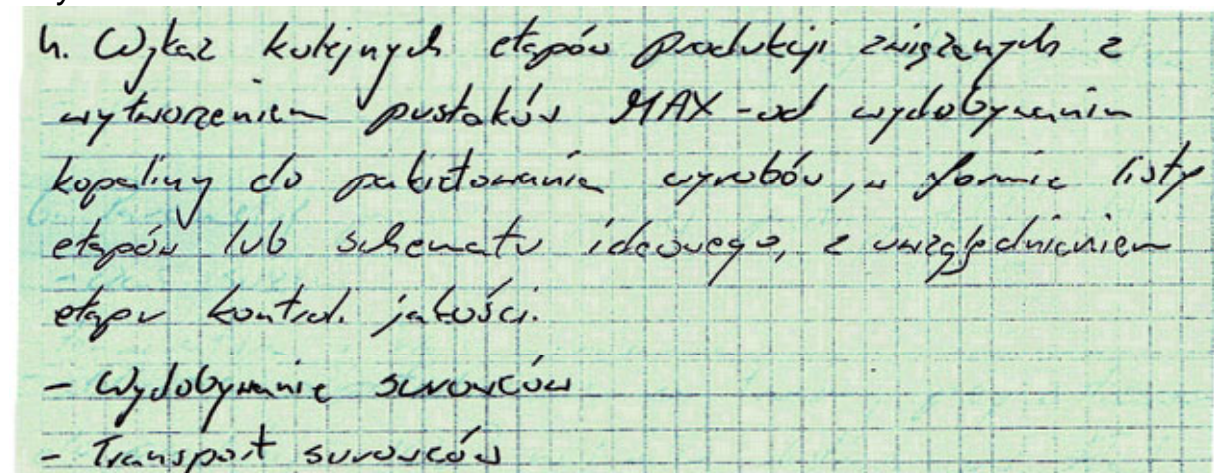 4. Wykaz kolejnych etapów produkcji związanych z
wytworzeniem pustaków MAX - od wydobywania
kopaliny do pakietowania wyrobów, w formie listy
etapów lub schematu ideowego, z uwzględnieniem
etapu kontroli jakości.
- Wydobywanie surowców
- Transport surowców